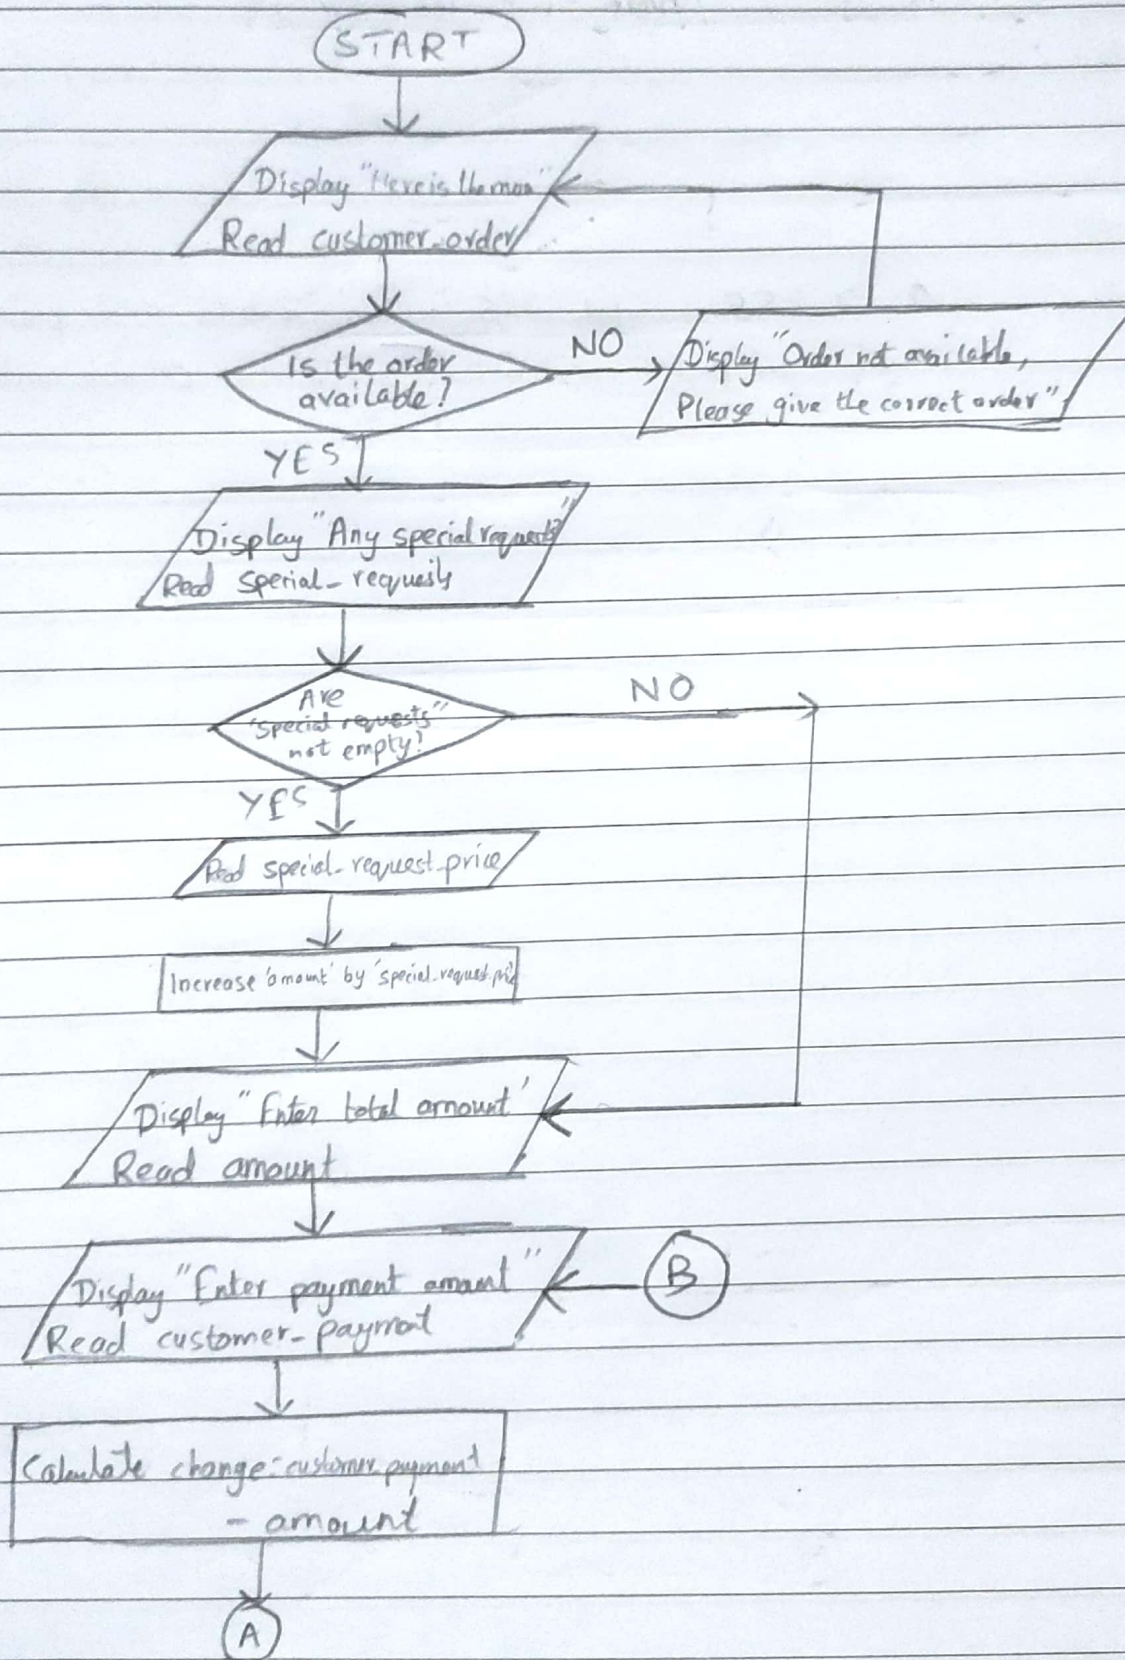 START
Display "Here is the
Read customer_order
Is the order
available?
NO
Display "Order not available,
Please give the correct order"
YES
Display "Any special requests?"
Read special_requests
Are
"special requests"
not empty?
NO
YES
Read special_request_price
Increase 'amount' by 'special_request_
Display "Enter total amount'
Read amount
Display "Enter payment amount"
Read customer_payment
B
Calculate change=customer_payment
- amount
A